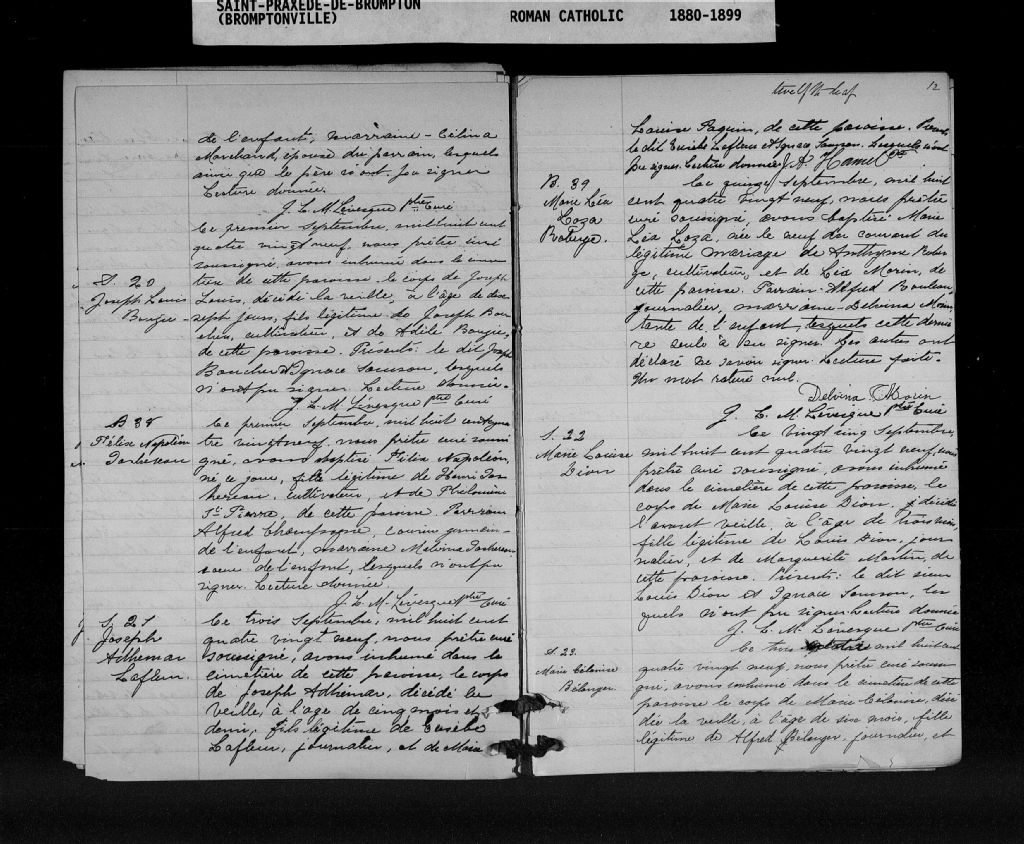 SAINT-PRAXEDE-DE-BROMPTON
(BROMPTONVILLE)
ROMAN CATHOLIC
1880-1899
de l'enfant, marraine - Célina
Marchand, épouse du parrain, lesquels
ainsi que le père n'ont pu signer
Lecture donnée.
J. E. M. Lévesque Ptre Curé
S. 20
Joseph Louis
Le premier Septembre, mil huit cent
quatre vingt neuf, nous prêtre curé
soussigné, avons inhumé dans le cime
tière de cette paroisse le corps de Joseph
Louis, décédé la veille, à l'âge de dix
sept jours, fils légitime de Joseph Bou
cher, cultivateur, et de Adèle
de cette paroisse. Présents: le dit Joseph
Boucher et Ignace Samson, lesquels
n'ont pu signer Lecture donnée.
J. E. M. Lévesque Ptre Curé
B 38
Félix Napoléon
Le premier Septembre, mil huit cent qua
tre vingt neuf, nous prêtre curé soussi
gné, avons baptisé Félix Napoléon,
né ce jour, fils légitime de Henri
cultivateur, et de Philomène
St Pierre, de cette paroisse. Parrain
Alfred Champagne, cousin germain
de l'enfant, marraine Malvina
soeur de l'enfant, lesquels n'ont pu
signer. Lecture donnée.
J. E. M. Lévesque Ptre Curé
S. 21
Joseph
Adhemar
Lafleur.
Le trois Septembre, mil huit cent
quatre vingt neuf, nous prêtre curé
soussigné, avons inhumé dans le
cimetière de cette paroisse, le corps
de Joseph Adhémar, décédé la
veille, à l'âge de cinq mois et
demi, fils légitime de Eusèbe
Lafleur, journalier, et de Marie
twelfth leaf
12
Louise Paquin, de cette paroisse. Présents
le dit Eusèbe Lafleur et Ignace Samson. Lesquels n'ont
pu signer. Lecture donnée J. A. Hamel Ptre
B. 39
Marie Léa
Loza
Roberge.
Le quinze Septembre, mil huit
cent quatre vingt neuf, nous prêtre
curé soussigné, avons baptisé Marie
Léa Loza, née le neuf du courant du
légitime mariage de Anthyme Rober
ge, cultivateur, et de Léa Morin, de
cette paroisse. Parrain Alfred
journalier, marraine Delvina Morin
tante de l'enfant, lesquels cette derniè
re seule a su signer les autres ont
déclaré ne savoir signer. Lecture faite.
Un mot raturé nul.
Delvina Morin
J. E. M. Lévesque Ptre Curé
S. 22
Marie Louise
Dion
Le vingt cinq Septembre,
mil huit cent quatre vingt neuf, nous
prêtre curé soussigné, avons inhumé
dans le cimetière de cette paroisse, le
corps de Marie Louise Dion, décédée
l'avant veille, à l'âge de trois mois,
fille légitime de Louis Dion, jour
nalier, et de Marguerite Martin, de
cette paroisse. Présents: le dit sieur
Louis Dion et Ignace Samson, les
quels n'ont pu signer. Lecture donnée
J. E. M. Lévesque Ptre Curé
S. 23.
Marie Célanire
Bélanger.
Le trois octobre mil huit cent
quatre vingt neuf, nous prêtre curé soussi
gné, avons inhumé dans le cimetière de cette
paroisse le corps de Marie Célanire, décé
dée la veille, à l'âge de six mois, fille
légitime de Alfred Bélanger, journalier, et